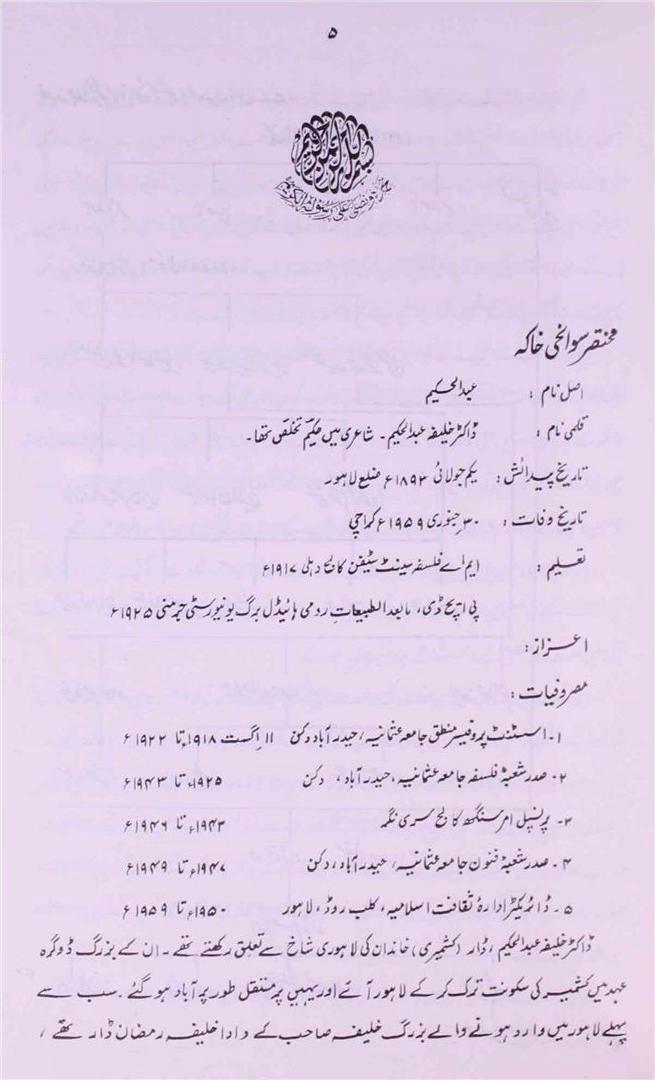 ۵
بسم اللہ الرحمن الرحیم
نحمدہ و نصلی علیٰ رسولہ الکریم
مختصر سوانحی خاکہ
اصل نام : عبدالحکیم
قلمی نام : ڈاکٹر خلیفہ عبدالحکیم ۔ شاعری میں حکیمؔ تخلص تھا۔
تاریخ پیدائش : یکم جولائی ۱۸۹۳ء ضلع لاہور
تاریخ وفات : ۳۰ جنوری ۱۹۵۹ء کراچی
تعلیم : ایم اے فلسفہ سینٹ سٹیفن کالج دہلی ۱۹۱۷ء
پی ایچ ڈی، مابعد الطبیعاتِ رومی ہائیڈل برگ یونیورسٹی جرمنی ۱۹۲۵ء
اعزاز :
مصروفیات :
۱۔ اسسٹنٹ پروفیسر منطق جامعہ عثمانیہ، حیدر آباد دکن ۱۱ اگست ۱۹۱۸ء تا ۱۹۲۲ء
۲۔ صدر شعبۂ فلسفہ جامعہ عثمانیہ، حیدر آباد، دکن ۱۹۲۵ء تا ۱۹۴۳ء
۳۔ پرنسپل امر سنگھ کالج سری نگر ۱۹۴۳ء تا ۱۹۴۶ء
۴۔ صدر شعبۂ فنون جامعہ عثمانیہ، حیدر آباد، دکن ۱۹۴۷ء تا ۱۹۴۹ء
۵۔ ڈائریکٹر ادارۂ ثقافت اسلامیہ، کلب روڈ، لاہور ۱۹۵۰ء تا ۱۹۵۹ء
ڈاکٹر خلیفہ عبدالحکیم، ڈار (کشمیری) خاندان کی لاہوری شاخ سے تعلق رکھتے تھے۔ ان کے بزرگ ڈوگرہ
عہد میں کشمیر کی سکونت ترک کر کے لاہور آئے اور یہیں پر مستقل طور پر آباد ہو گئے۔ سب سے
پہلے لاہور میں وارد ہونے والے بزرگ خلیفہ صاحب کے دادا خلیفہ رمضان ڈار تھے،